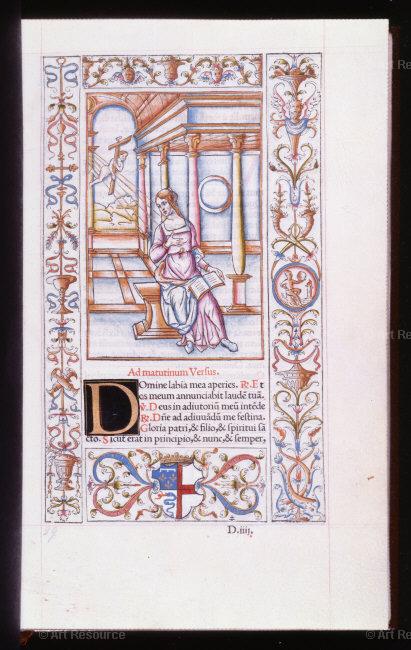 Ad matutinum Versus.
DOmine labia mea aperies. R. E t
os meum annunciabit laudē tuā.
V. D eus in adiutoriū meū intēde
R. D ñe ad adiuuādū me festina.
G loria patri, & filio, & spiritui sā
cto. S icut erat in principio, & nunc, & semper,
D.iiij.
© Art Resource
© Art Resource
© Art Resource
© Art Resource